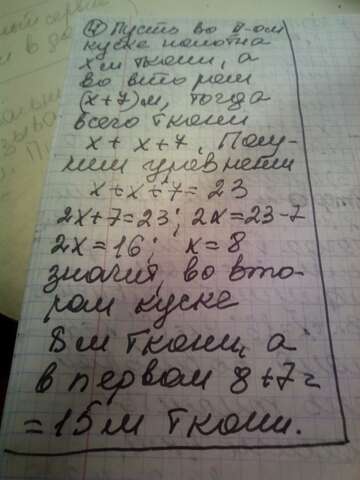 ④ Пусть во II-ом
куске полотна
x м ткани, а
во втором
(x+7) м, тогда
всего ткани
x + x+7. Полу-
чим уравнение
x+x+7=23
2x+7=23; 2x=23-7
2x=16; x=8
значит, во вто-
ром куске
8 м ткани, а
в первом 8+7=
=15 м ткани.